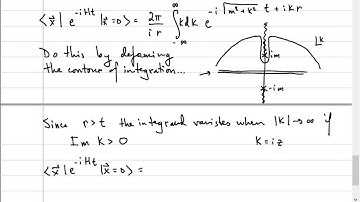 ⟨x⃗| e^{-iHt} |x⃗=0⟩ = 2π/(i r) ∫_{-∞}^{∞} k dk e^{-i√(m²+k²) t + i k r}
Do this by deforming
the contour of integration...
k
im
-im
Since r>t the integrand vanishes when |k|→∞ if
Im k > 0
k = i z
⟨x⃗| e^{-iHt} |x⃗=0⟩ =